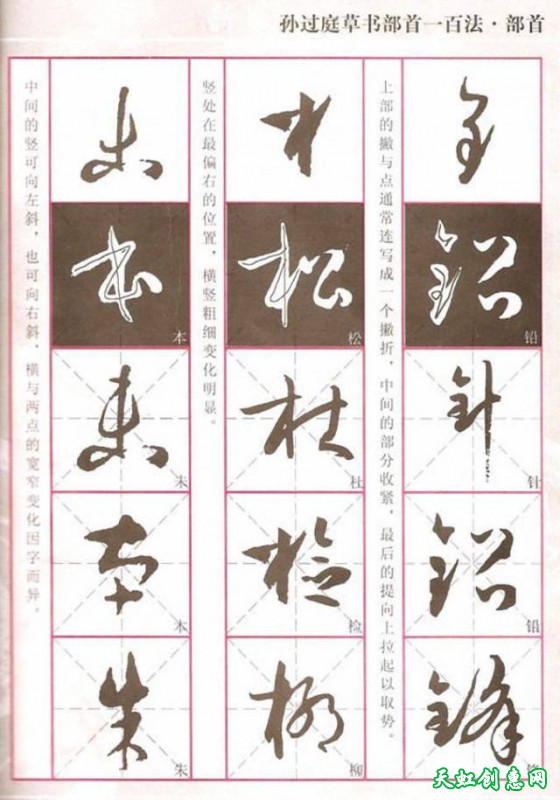 孙过庭草书部首一百法·部首
铅
针
铅
锋
上部的撇与点通常连写成一个撇折，中间的部分收紧，最后的提向上拉起以取势。
松
杜
检
柳
竖处在最偏右的位置，横竖粗细变化明显。
本
本
朱
中间的竖可向左斜，也可向右斜，横与两点的宽窄变化因字而异。
天虹创意网